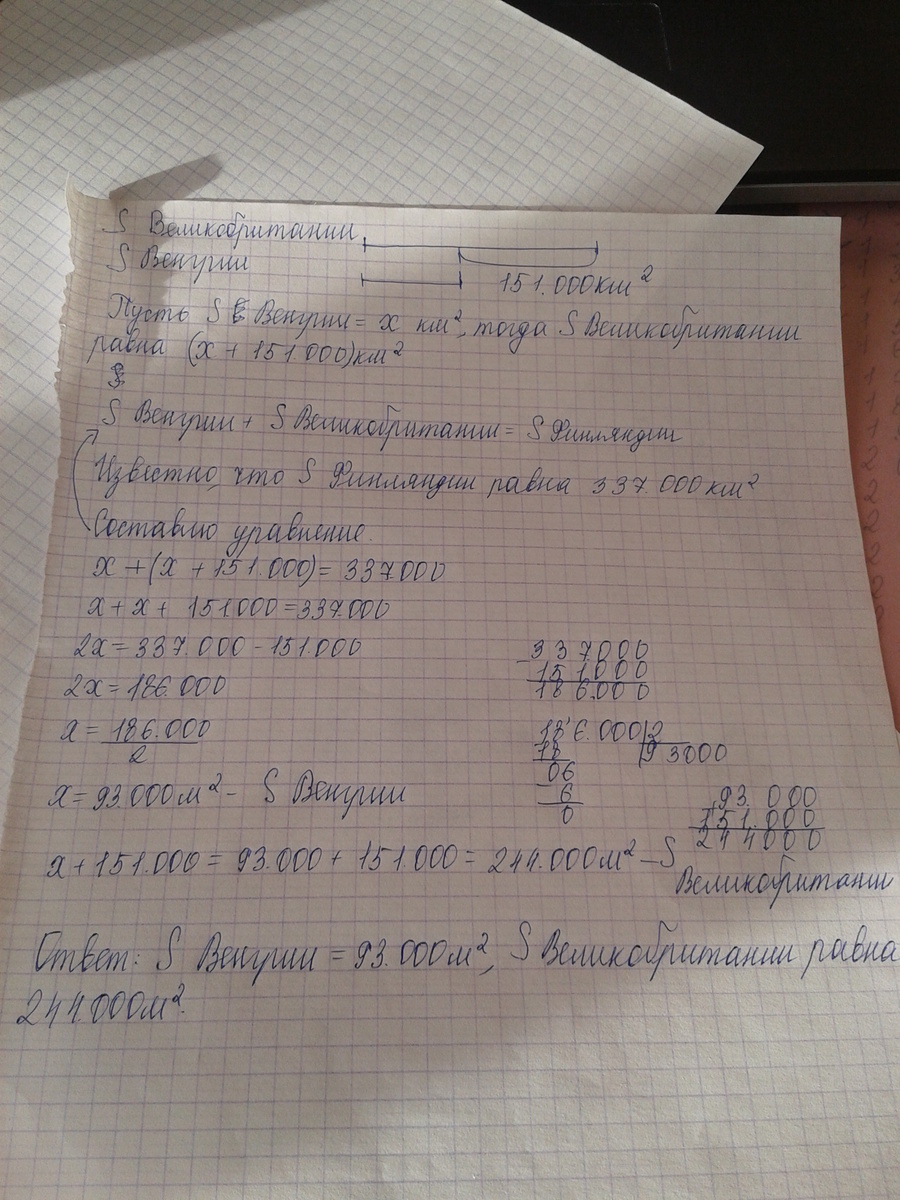 S Великобритании
S Венгрии
151.000км²
Пусть S Венгрии = x км², тогда S Великобритании
равна (x + 151.000)км²
S Венгрии + S Великобритании = S Финляндии
Известно, что S Финляндии равна 337.000км²
Составлю уравнение.
x + (x + 151.000) = 337000
x + x + 151000 = 337.000
2x = 337.000 - 151.000
2x = 186.000
x = 186.000
2
x = 93.000м² - S Венгрии
x + 151.000 = 93.000 + 151.000 = 244.000м² - S
Великобритании
337000
151000
186.000
186.000 2
18 93000
06
6
0
93.000
151.000
244000
Ответ: S Венгрии = 93.000м², S Великобритании равна
244.000м².